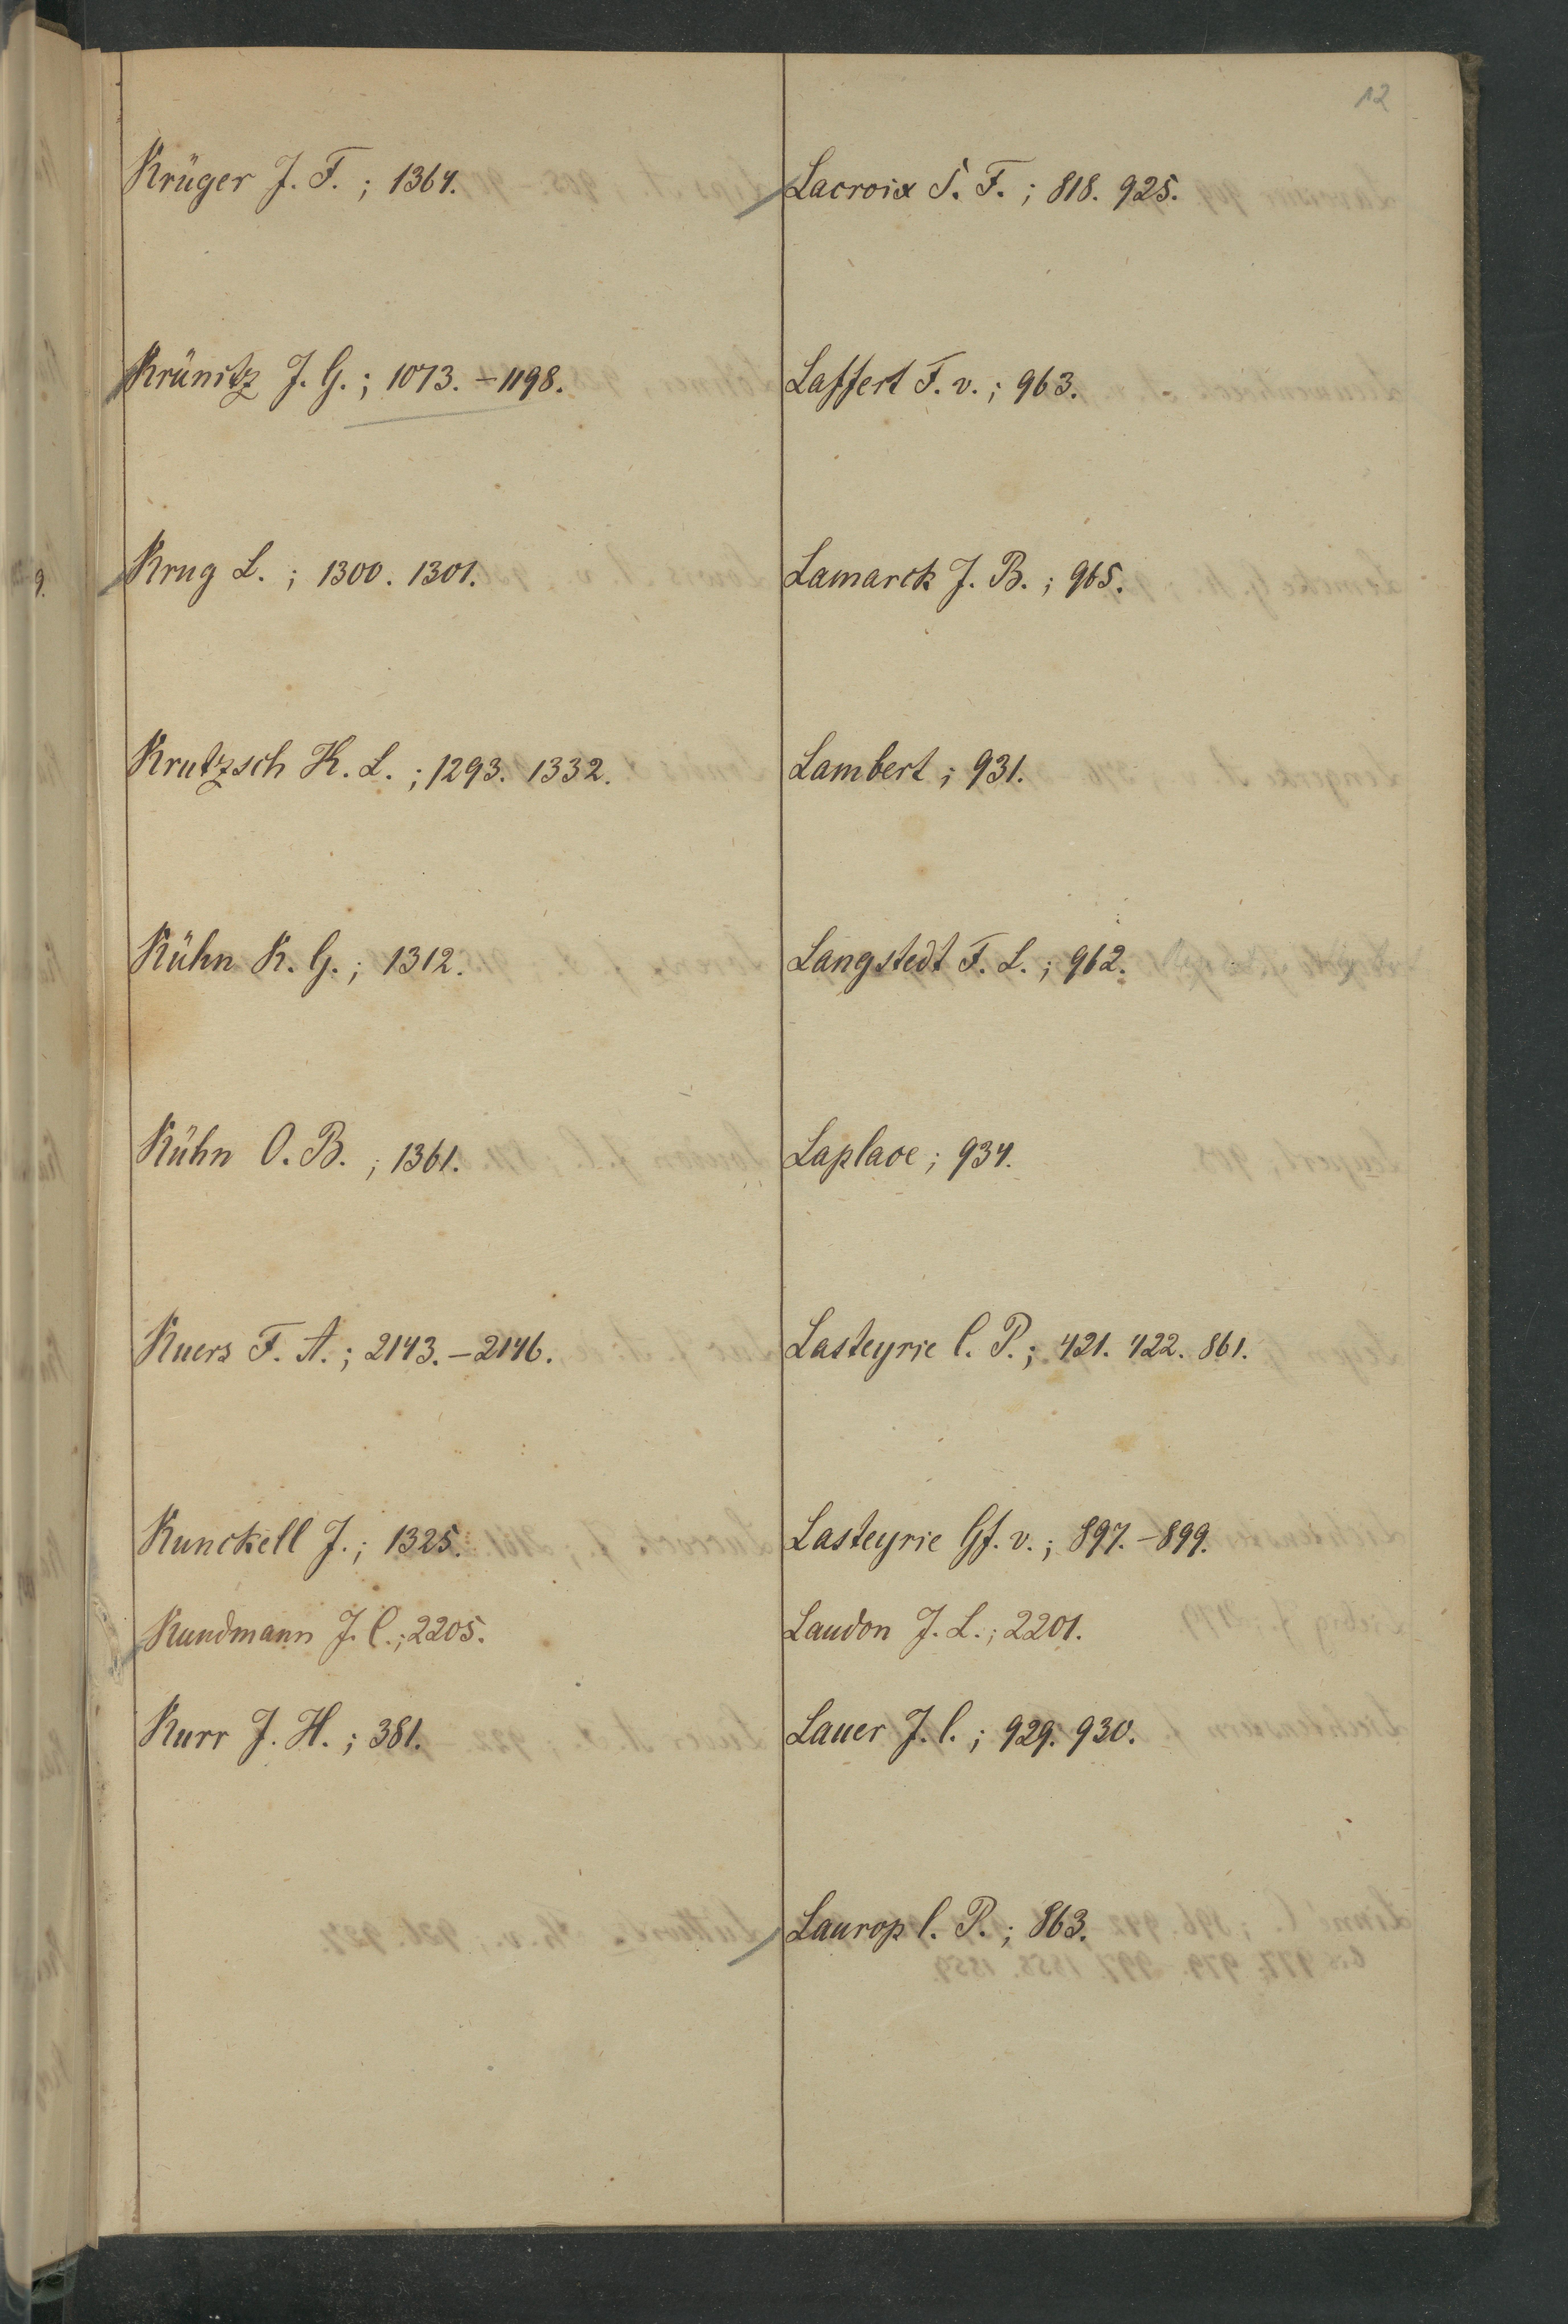 12
Krüger J. F. ; 1364.
Krünitz J. G. ; 1073. – 1198.
Krug L. ; 1300. 1301.
Krutzsch K. L. ; 1293. 1332.
Kühn K. G. ; 1312.
Kühn O. B. ; 1361.
Kuers F. A. ; 2143. – 2146.
Kunckell J. ; 1325.
Kundmann J. C. ; 2205.
Kurr J. H. ; 381.
Lacroix S. F. ; 818. 925.
Laffert F. v. ; 963.
Lamarck J. B. ; 965.
Lambert ; 931.
Langstedt F. L. ; 962.
Laplace ; 934.
Lasteyrie C. P. ; 421. 422. 861.
Lasteyrie Gf. v. ; 897. – 899.
Laudon J. L. ; 2201.
Lauer J. C. ; 929. 930.
Laurop C. P. ; 863.